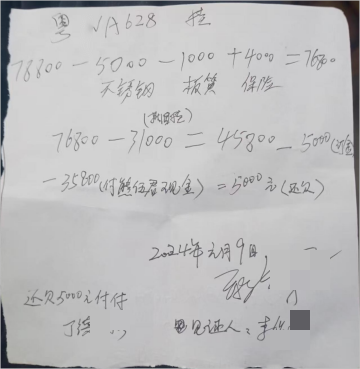 粤 VA628 挂
78800－5000－1000＋4000＝76800
不锈钢 板簧 保险
76800－31000＝45800－5000
－35800(付熊伍君现金)＝5000元(还欠)
2024年元月9日
还欠5000元付付
见证人：李